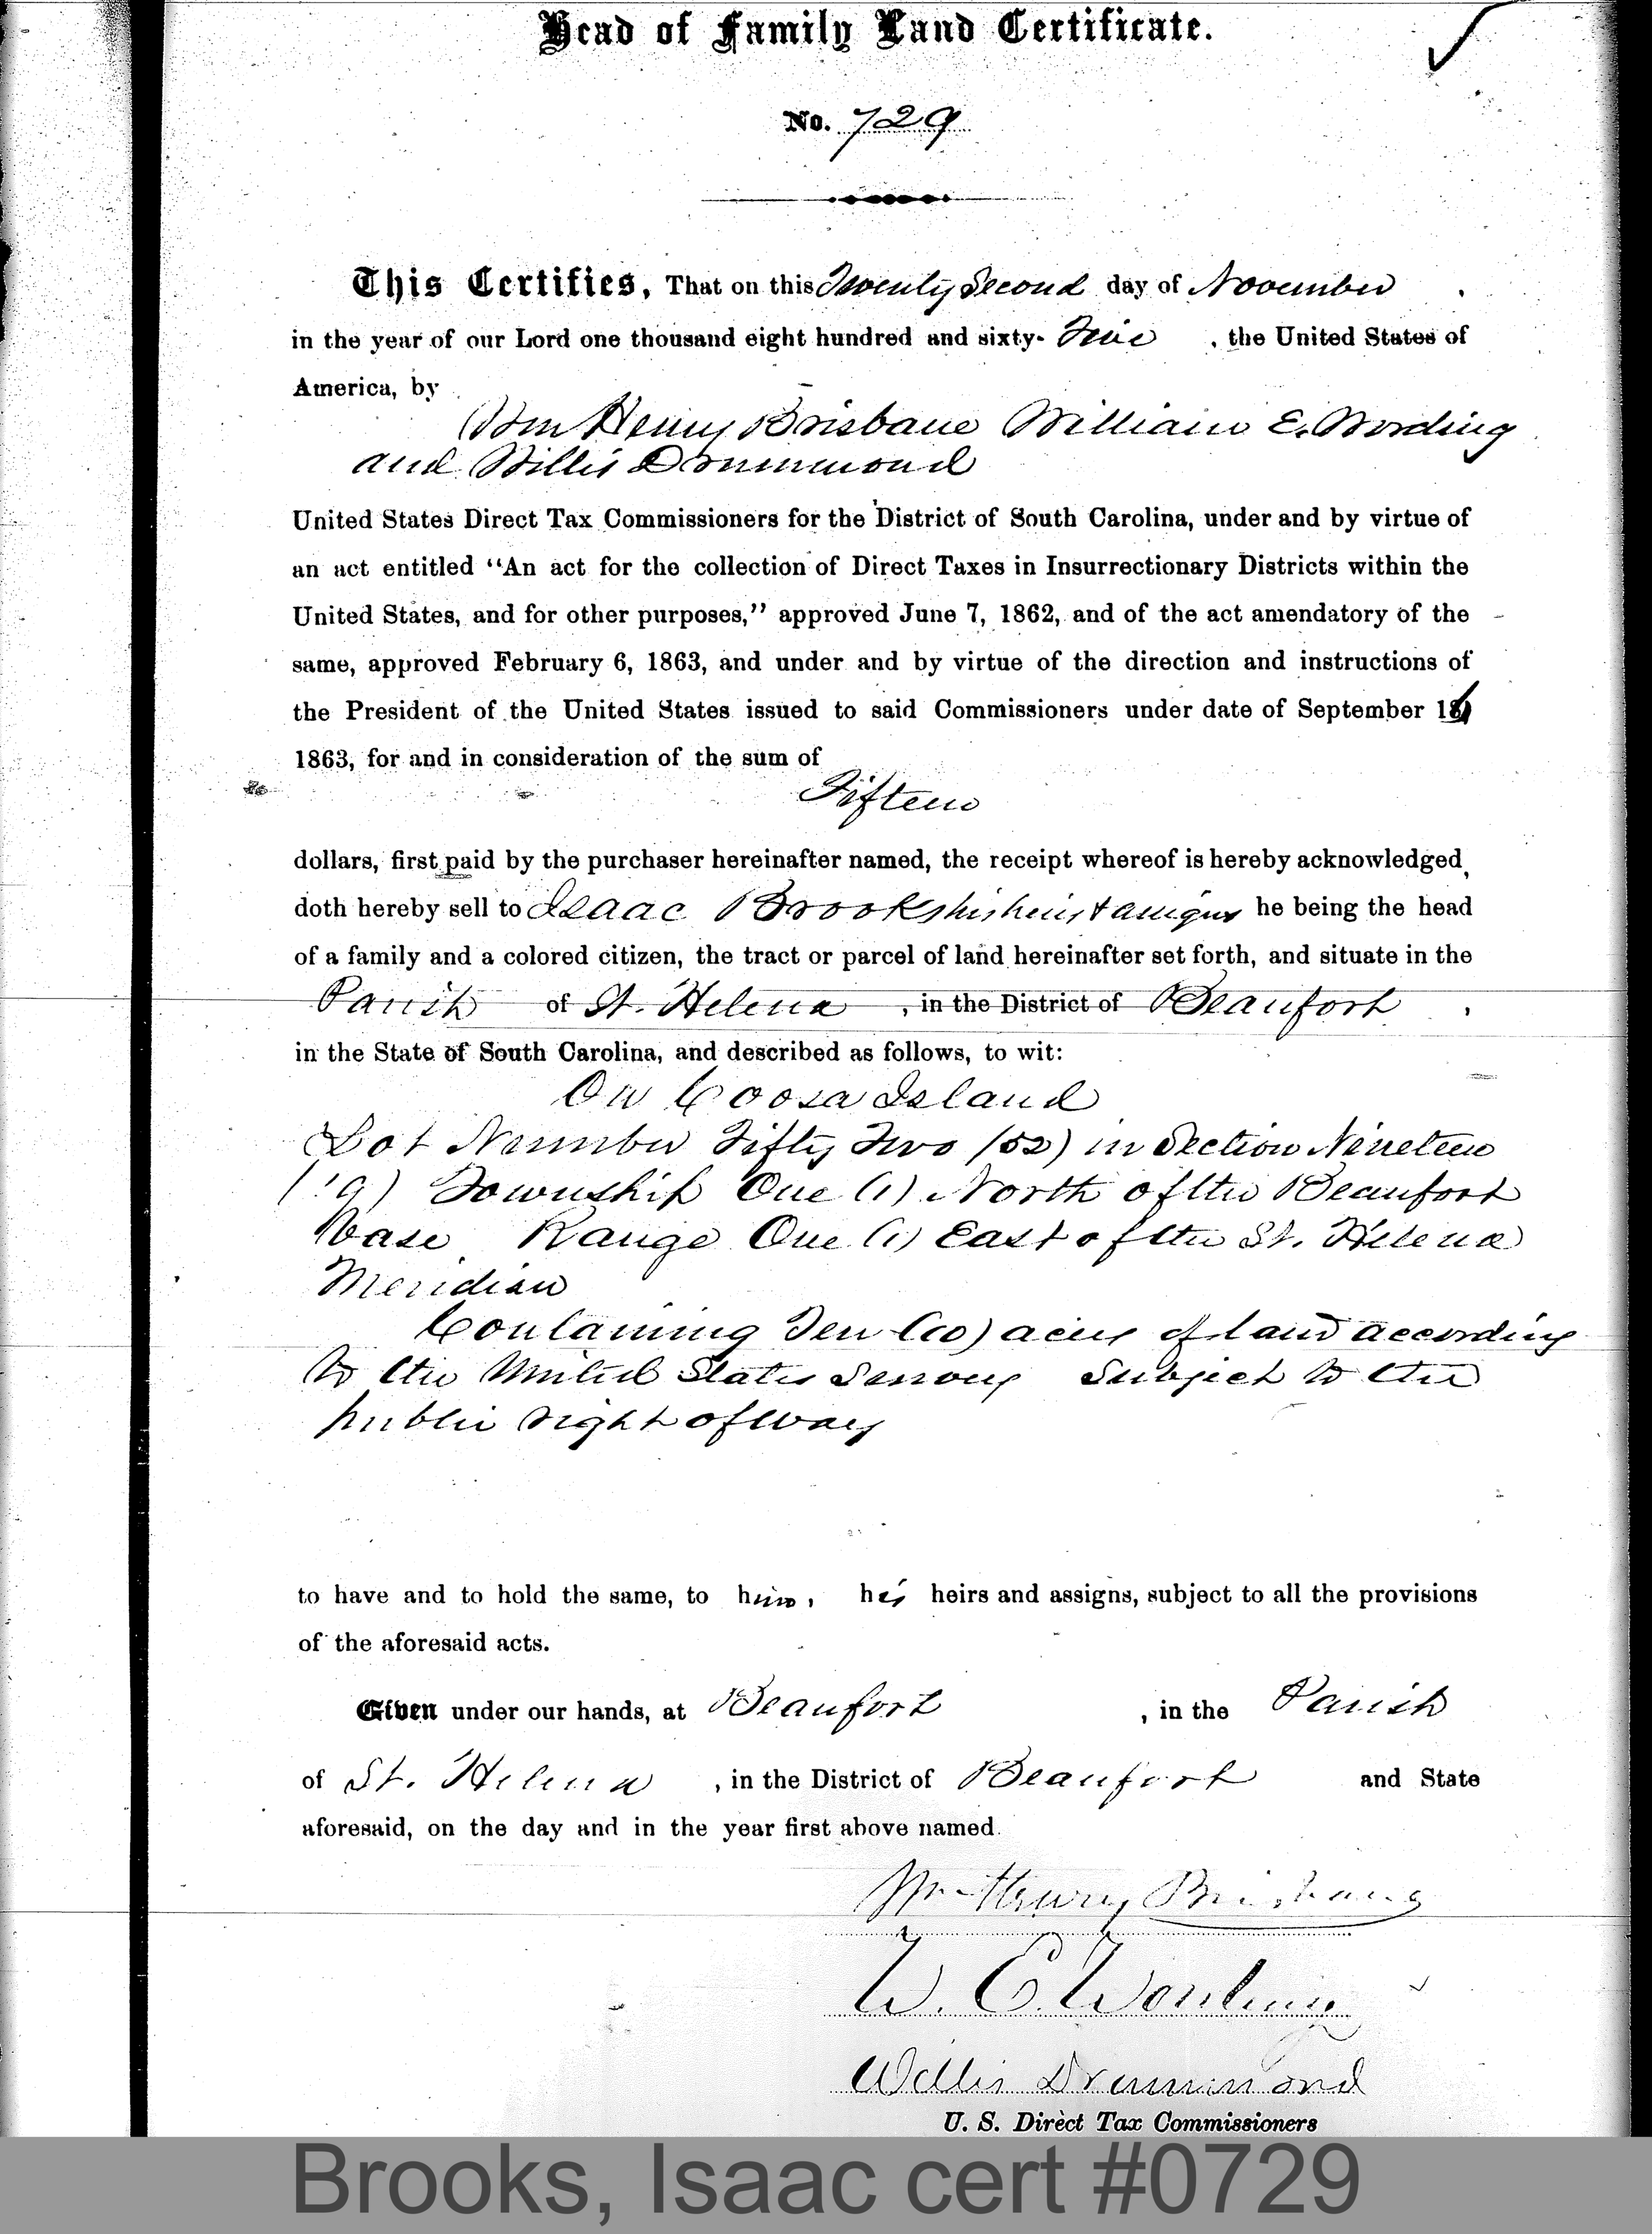 Head of Family Land Certificate.
No. 729
This Certifies, That on this Twenty Second day of November
in the year of our Lord one thousand eight hundred and sixty- Five , the United States of
America, by
Wm Henry Brisbane William E. Wording
and Willis Drummond
United States Direct Tax Commissioners for the District of South Carolina, under and by virtue of
an act entitled "An act for the collection of Direct Taxes in Insurrectionary Districts within the
United States, and for other purposes," approved June 7, 1862, and of the act amendatory of the
same, approved February 6, 1863, and under and by virtue of the direction and instructions of
the President of the United States issued to said Commissioners under date of September
1863, for and in consideration of the sum of
Fifteen
dollars, first paid by the purchaser hereinafter named, the receipt whereof is hereby acknowledged,
doth hereby sell to Isaac Brooks his heirs & assigns he being the head
of a family and a colored citizen, the tract or parcel of land hereinafter set forth, and situate in the
Parish of St. Helena , in the District of Beaufort ,
in the State of South Carolina, and described as follows, to wit:
On Coosa Island
Lot Number Fifty Two (52) in Section Nineteen
(19) Township One (1) North of the Beaufort
Base Range One (1) East of the St. Helena
Meridian
Containing Ten (10) acres of land according
to the United States Survey Subject to the
public right of way
to have and to hold the same, to him, his heirs and assigns, subject to all the provisions
of the aforesaid acts.
Given under our hands, at Beaufort , in the Parish
of St. Helena , in the District of Beaufort and State
aforesaid, on the day and in the year first above named.
Wm Henry Brisbane
W. E. Wording
Willis Drummond
U. S. Direct Tax Commissioners
Brooks, Isaac cert #0729